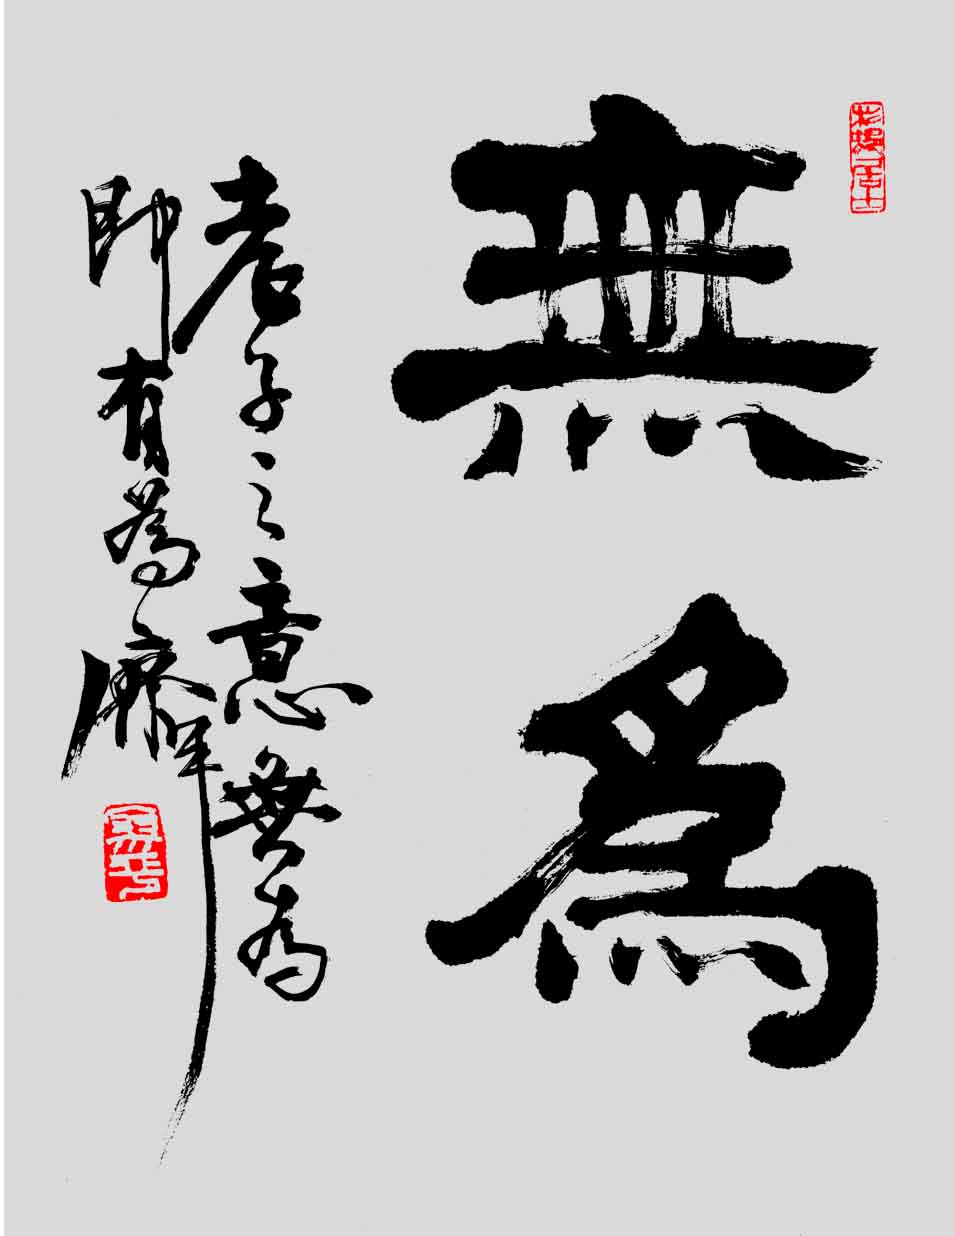 無為
老子之意無為
即有為